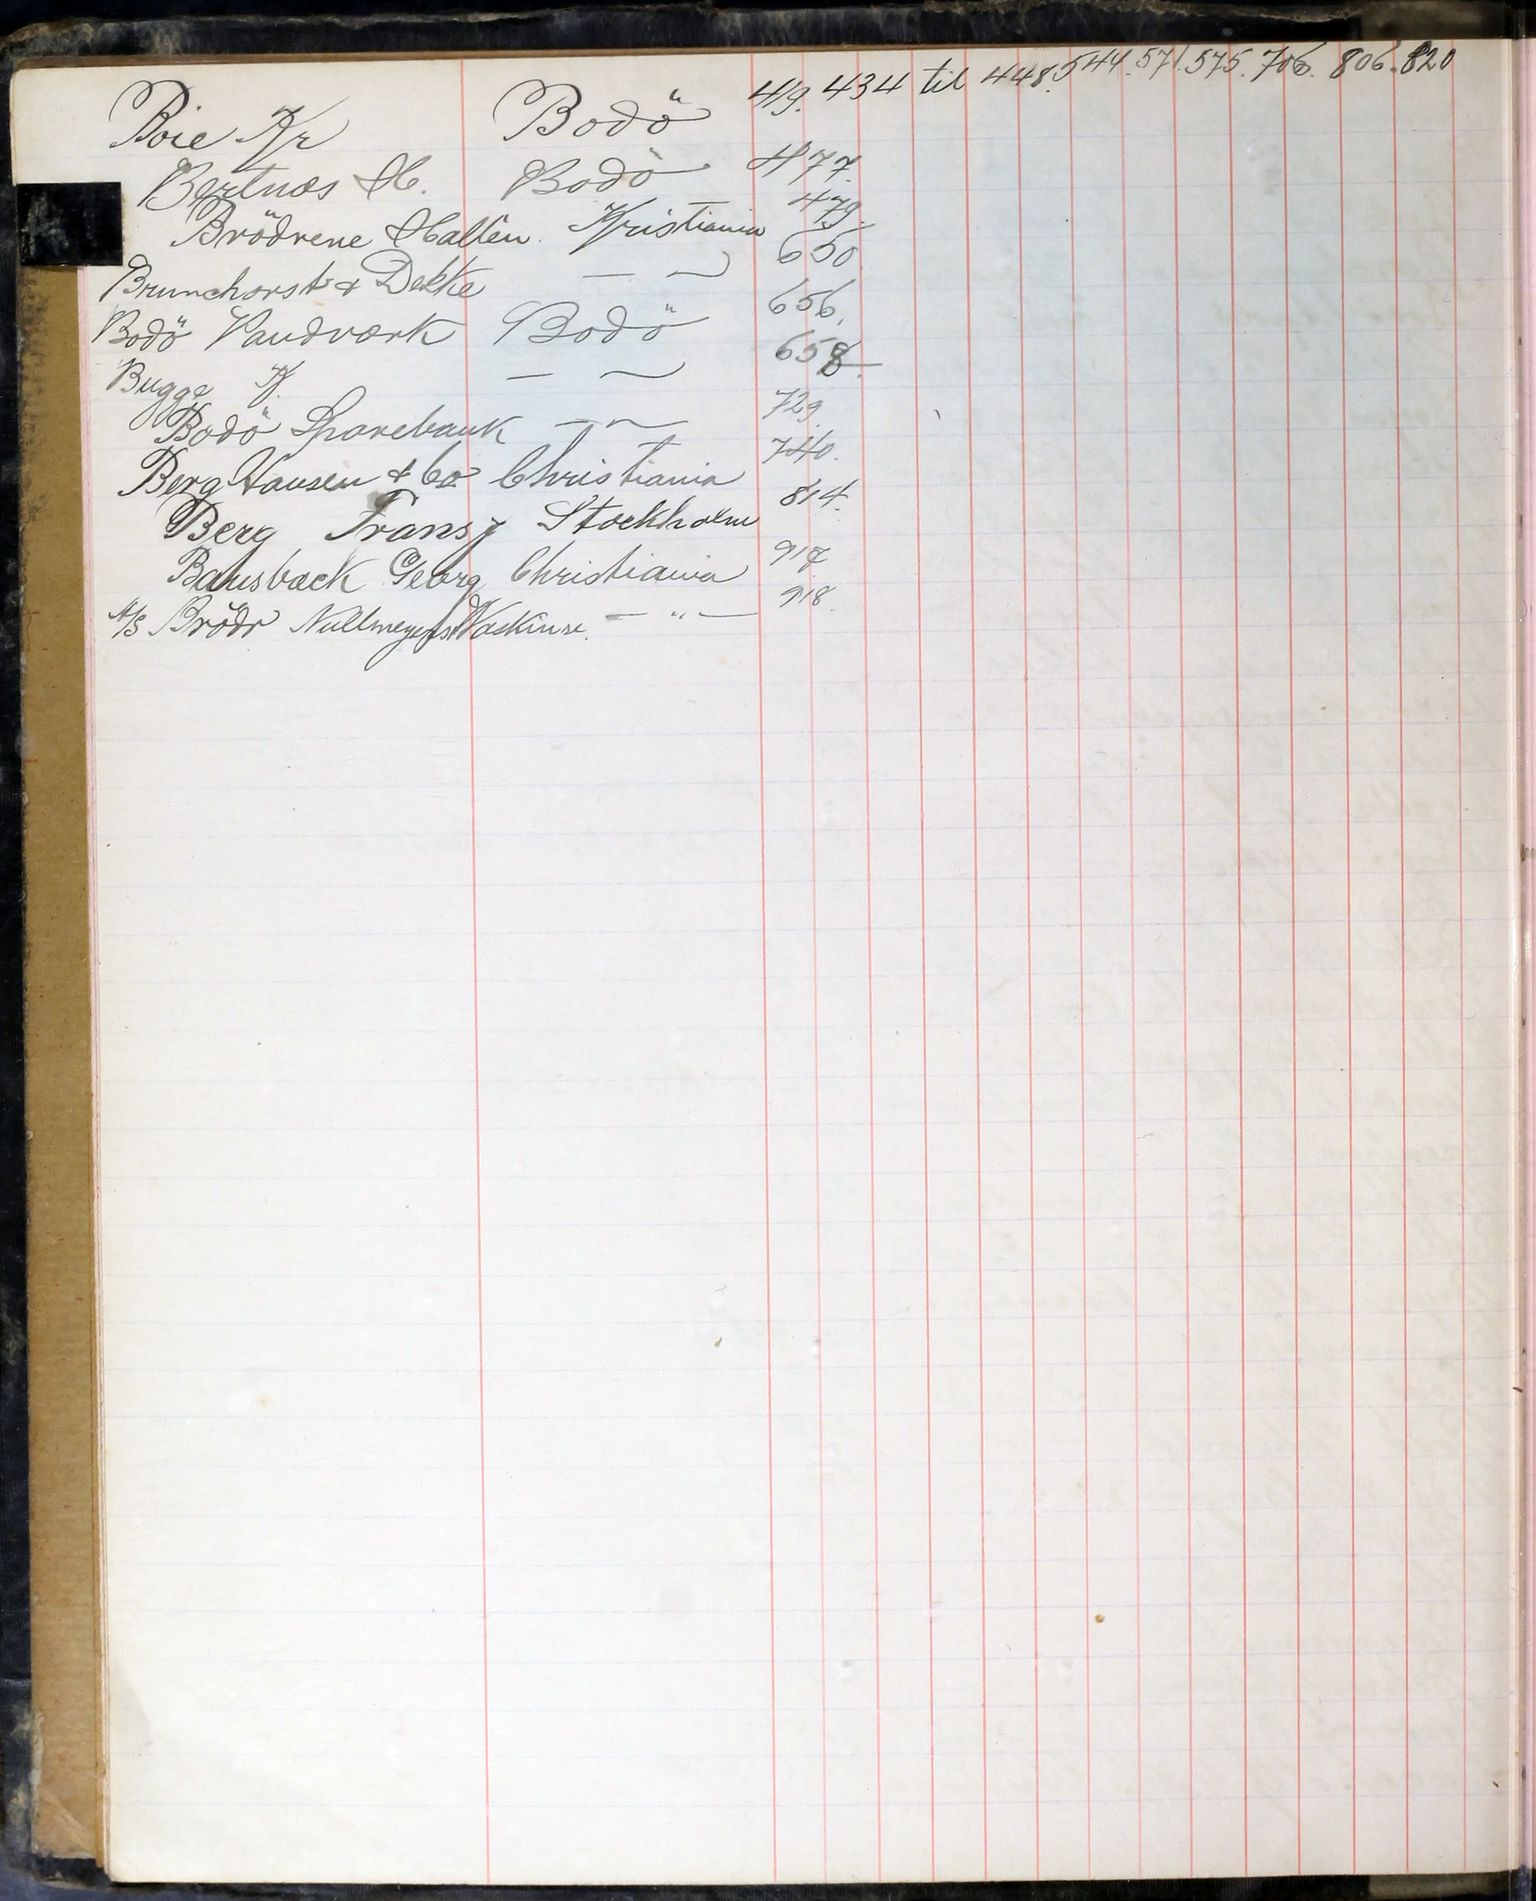 Boie Kr Bodö 419. 434 til 448. 544. 571. 575. 706. 806. 820
Bertnæs H. Bodö 477.
Brödrene Hallén. Kristiania 479.
Brunchorst & Dekke — 〃 650
Bodö Vandværk Bodö 656.
Bugge K. — 〃 658.
Bodö Sparebank — 〃 729.
Berg Hansen & Co Christiania 740.
Berg Frans J Stockholm 814.
Bausback Georg Christiania 917
A/S Brödr Nullmeyers Maskinre. — " — 918.